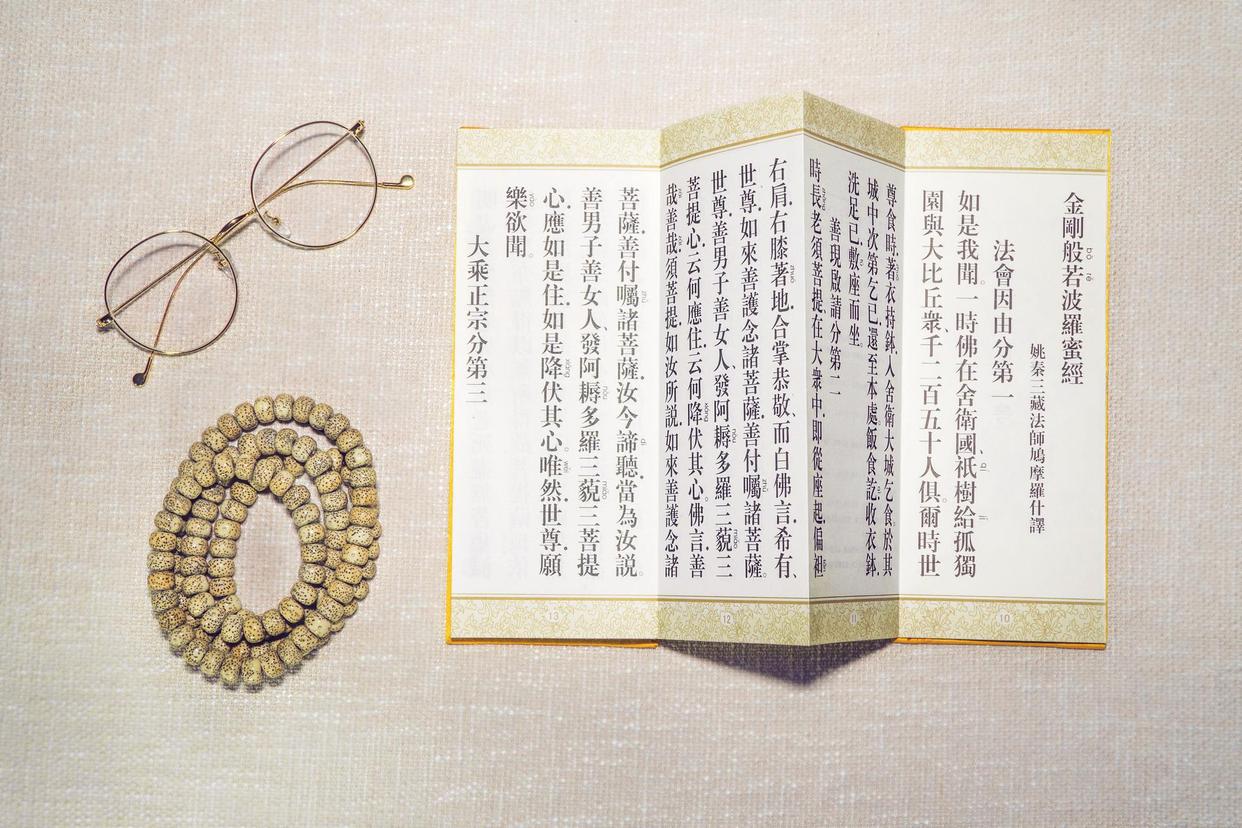 金剛般若波羅蜜經
bō rě
姚秦三藏法師鳩摩羅什譯
法會因由分第一
如是我聞。一時佛在舍衛國、祇樹給孤獨
qí jǐ
園與大比丘衆、千二百五十人俱。爾時世
10
尊食時。著衣持鉢。入舍衛大城乞食。於其
城中次第乞已。還至本處。飯食訖。收衣鉢。
洗足已。敷座而坐。
善現啟請分第二
時長老須菩提。在大衆中。即從座起。偏袒
11
右肩。右膝著地。合掌恭敬、而白佛言。希有、
zhuó
世尊。如來善護念諸菩薩。善付囑諸菩薩。
zhǔ
世尊。善男子善女人、發阿耨多羅三藐三
nòu miǎo
菩提心。云何應住。云何降伏其心。佛言。善
xiáng
哉善哉。須菩提。如汝所說。如來善護念諸
12
菩薩。善付囑諸菩薩。汝今諦聽。當為汝說。
zhǔ dì
善男子善女人、發阿耨多羅三藐三菩提
nòu miǎo
心。應如是住。如是降伏其心。唯然世尊。願
xiáng wěi
樂欲聞。
yào
大乘正宗分第三
13